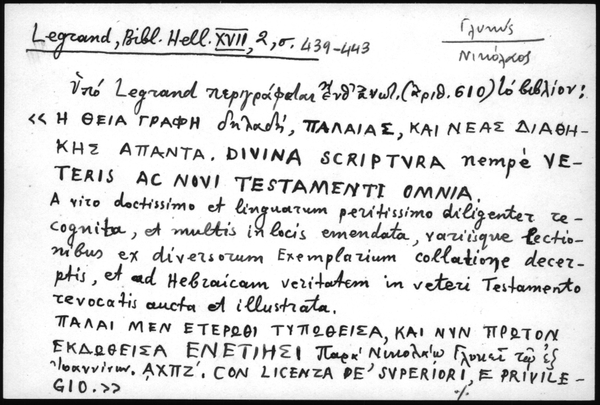 Legrand, Bibl. Hell. XVII, 2, σ. 439-443
Γλυκύς
Νικόλαος
Ὑπό Legrand περιγράφεται ἔνθ' ἀνωτ. (ἀριθ. 610) τό βιβλίον:
«Η ΘΕΙΑ ΓΡΑΦΗ δηλαδή, ΠΑΛΑΙΑΣ, ΚΑΙ ΝΕΑΣ ΔΙΑΘΗ-
ΚΗΣ ΑΠΑΝΤΑ. DIVINA SCRIPTVRA nempè VE-
TERIS AC NOVI TESTAMENTI OMNIA.
A viro doctissimo et linguarum peritissimo diligenter re-
cognita, et multis in locis emendata, variisque lectio-
nibus ex diversorum Exemplarium collatione decer-
ptis, et ad Hebraicam veritatem in veteri Testamento
revocatis aucta et illustrata.
ΠΑΛΑΙ ΜΕΝ ΕΤΕΡΩΘΙ ΤΥΠΩΘΕΙΣΑ, ΚΑΙ ΝΥΝ ΠΡΩΤΟΝ
ΕΚΔΩΘΕΙΣΑ ΕΝΕΤΙΗΣΙ Παρὰ Νικολάῳ Γλυκεῖ τῷ ἐξ
Ἰωαννίνων. ΑΧΠΖ΄. CON LICENZA DE' SUPERIORI, E PRIVILE-
GIO.»